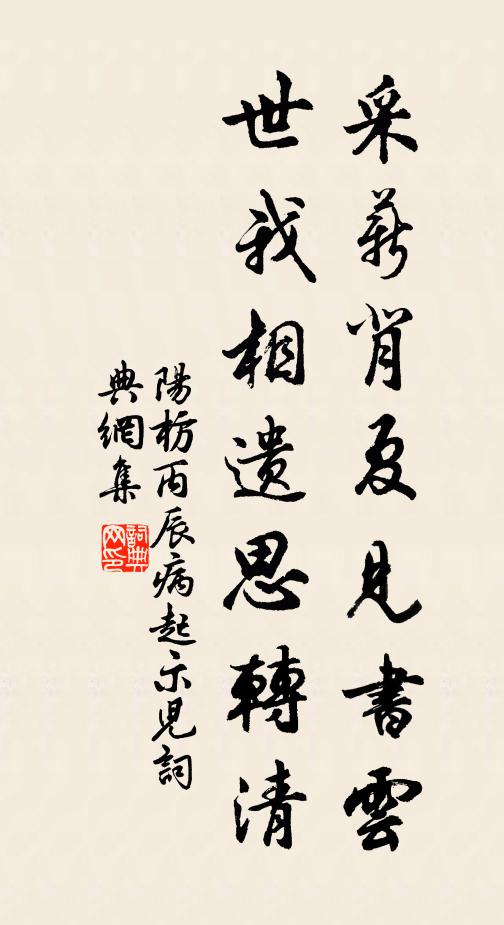 采薪首夏見書雲
世我相遺思轉清
陽枋丙辰病起示児詞
典網集
詞典
网印